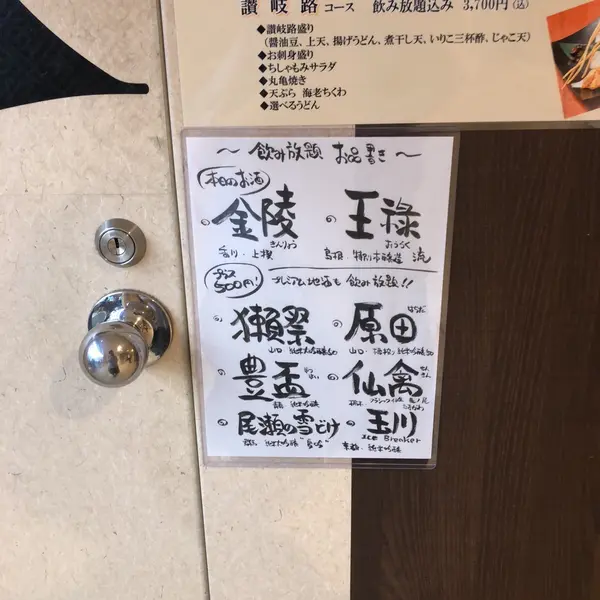 讃岐路 コース 飲み放題込み 3,700円(込)
◆讃岐路盛り
(醤油豆、上天、揚げうどん、煮干し天、いりこ三杯酢、じゃこ天)
◆お刺身盛り
◆ちしゃもみサラダ
◆丸亀焼き
◆天ぷら 海老ちくわ
◆選べるうどん
〜 飲み放題 お品書き 〜
本日のお酒
金陵 王祿
きんりょう おうろく
香川・上撰
プラス500円! プレミアム地酒も飲み放題!!
獺祭 原田
はらだ
山口 純米大吟醸50 山口
豊盃 仙禽
せんきん
尾瀬の雪どけ 玉川
Ice Breaker
純米大吟醸 純米吟醸